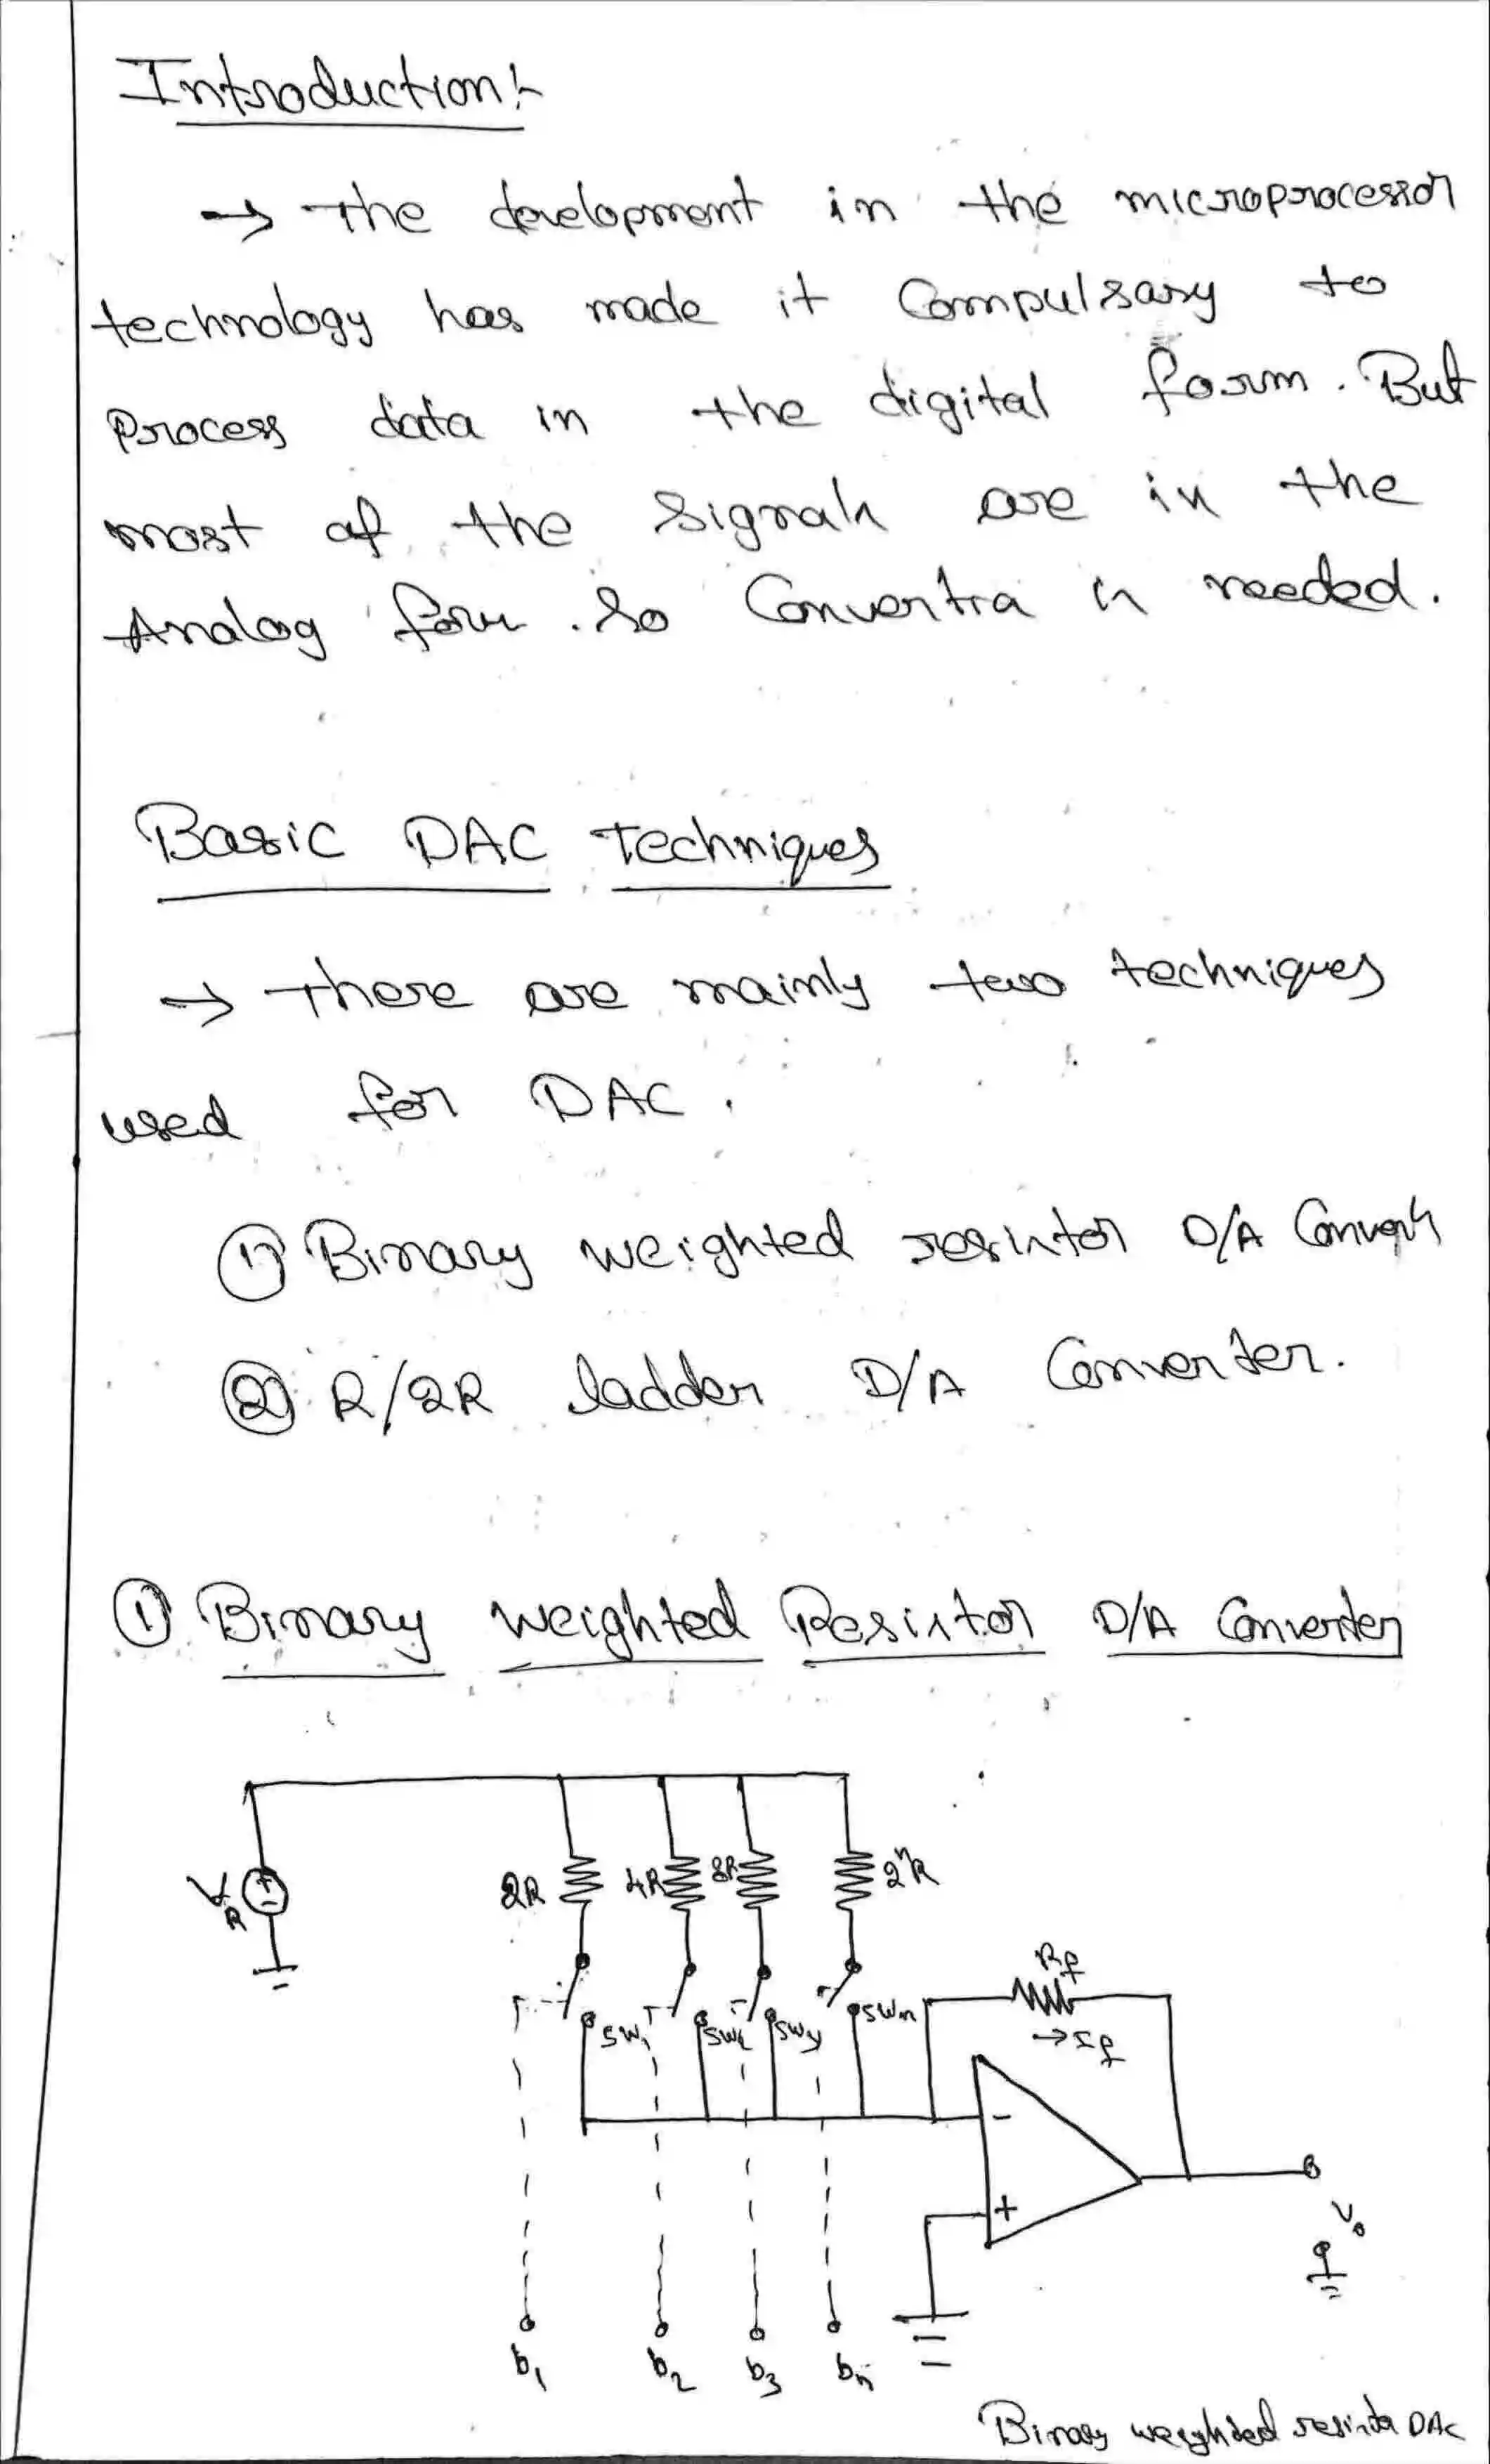 Introduction:-
→ The development in the microprocessor
technology has made it Compulsary to
Process data in the digital form. But
most of the Signals are in the
Analog form. So Convertra is needed.
Basic DAC Techniques
→ There are mainly two techniques
used for DAC.
① Binary weighted resistor D/A Convert
② R/2R ladder D/A Converter.
① Binary weighted Resistor D/A Converter
VR
2R 4R 8R 2ⁿR
Rf
→ If
SW1 SW2 SWn
-
+
Vo
b1 b2 b3 bn
Binary weighted resistor DAC